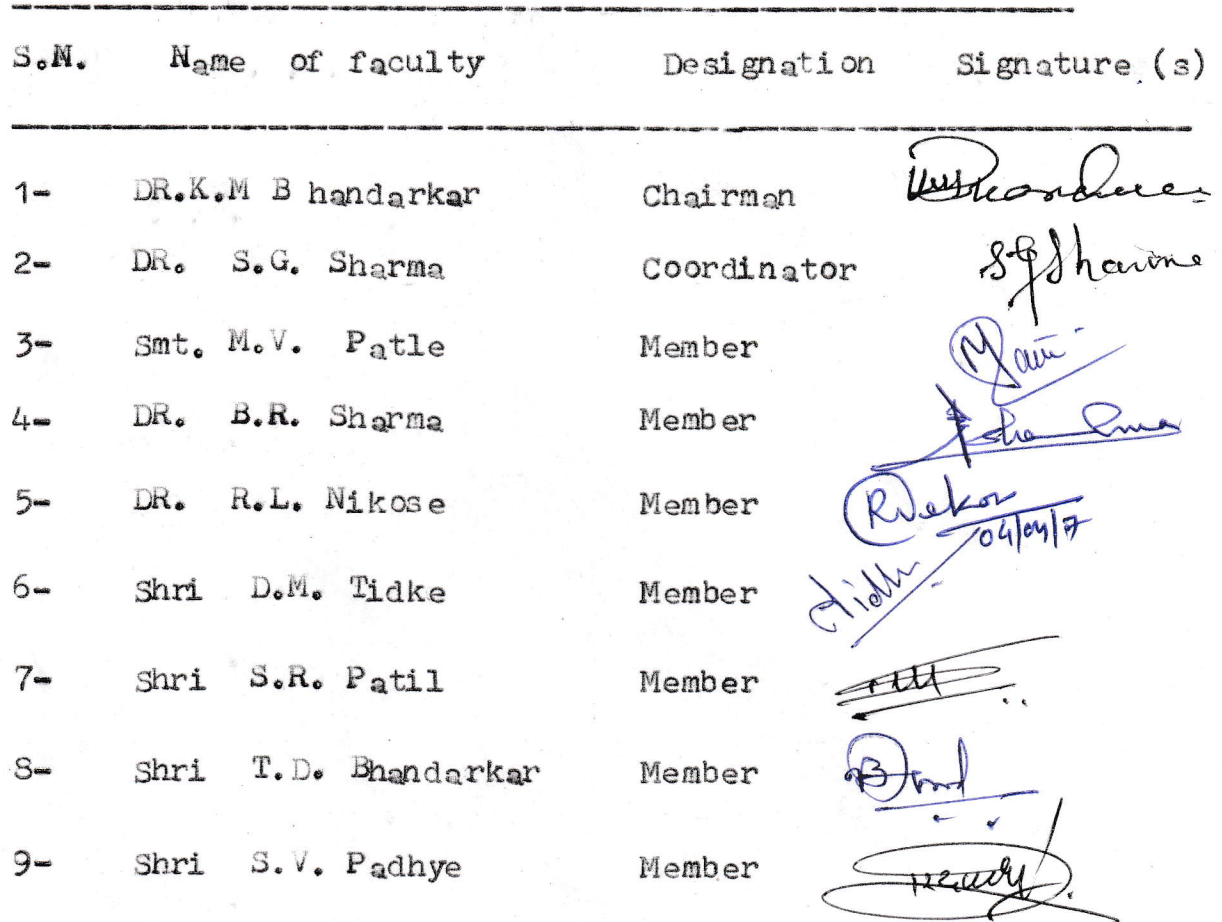 S.N. Name of faculty Designation Signature (s)
1- DR.K.M B handarkar Chairman
2- DR. S.G. Sharma Coordinator SGSharma
3- Smt. M.V. Patle Member
4- DR. B.R. Sharma Member
5- DR. R.L. Nikose Member
6- Shri D.M. Tidke Member
7- Shri S.R. Patil Member
8- Shri T.D. Bhandarkar Member
9- Shri S.V. Padhye Member